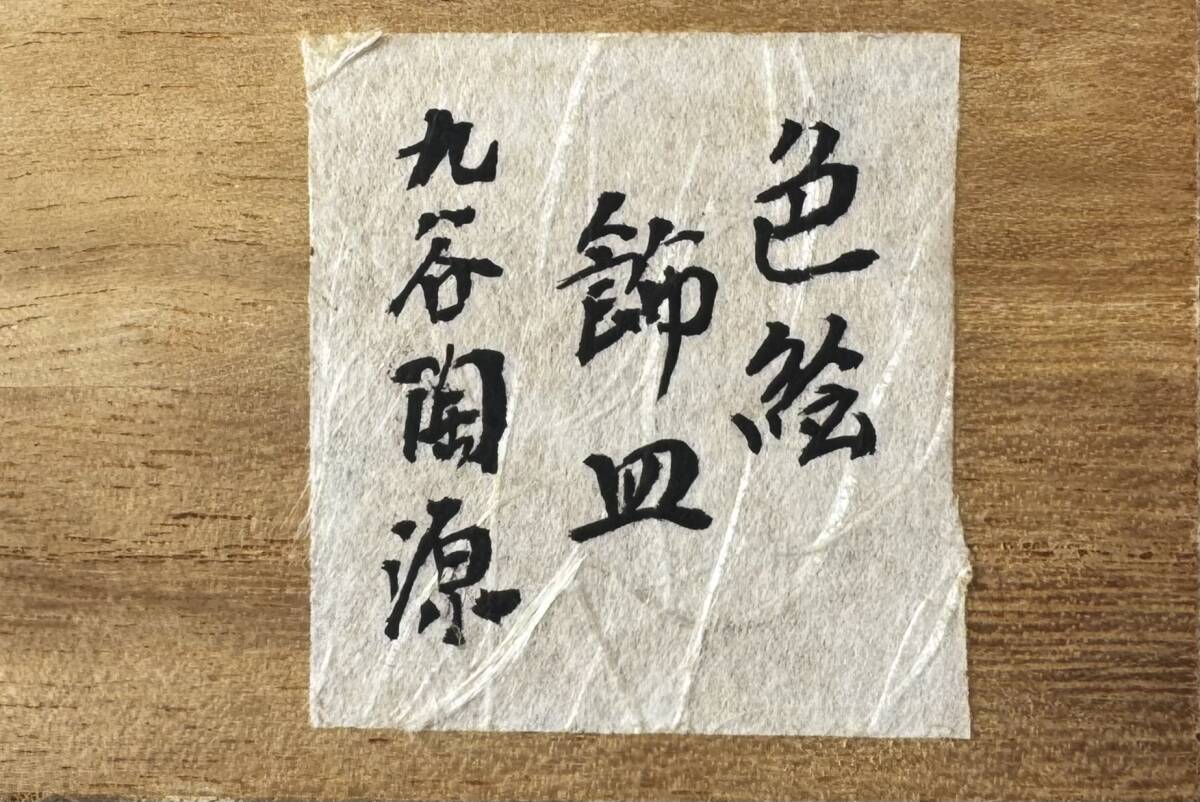 色絵
飾皿
九谷陶源